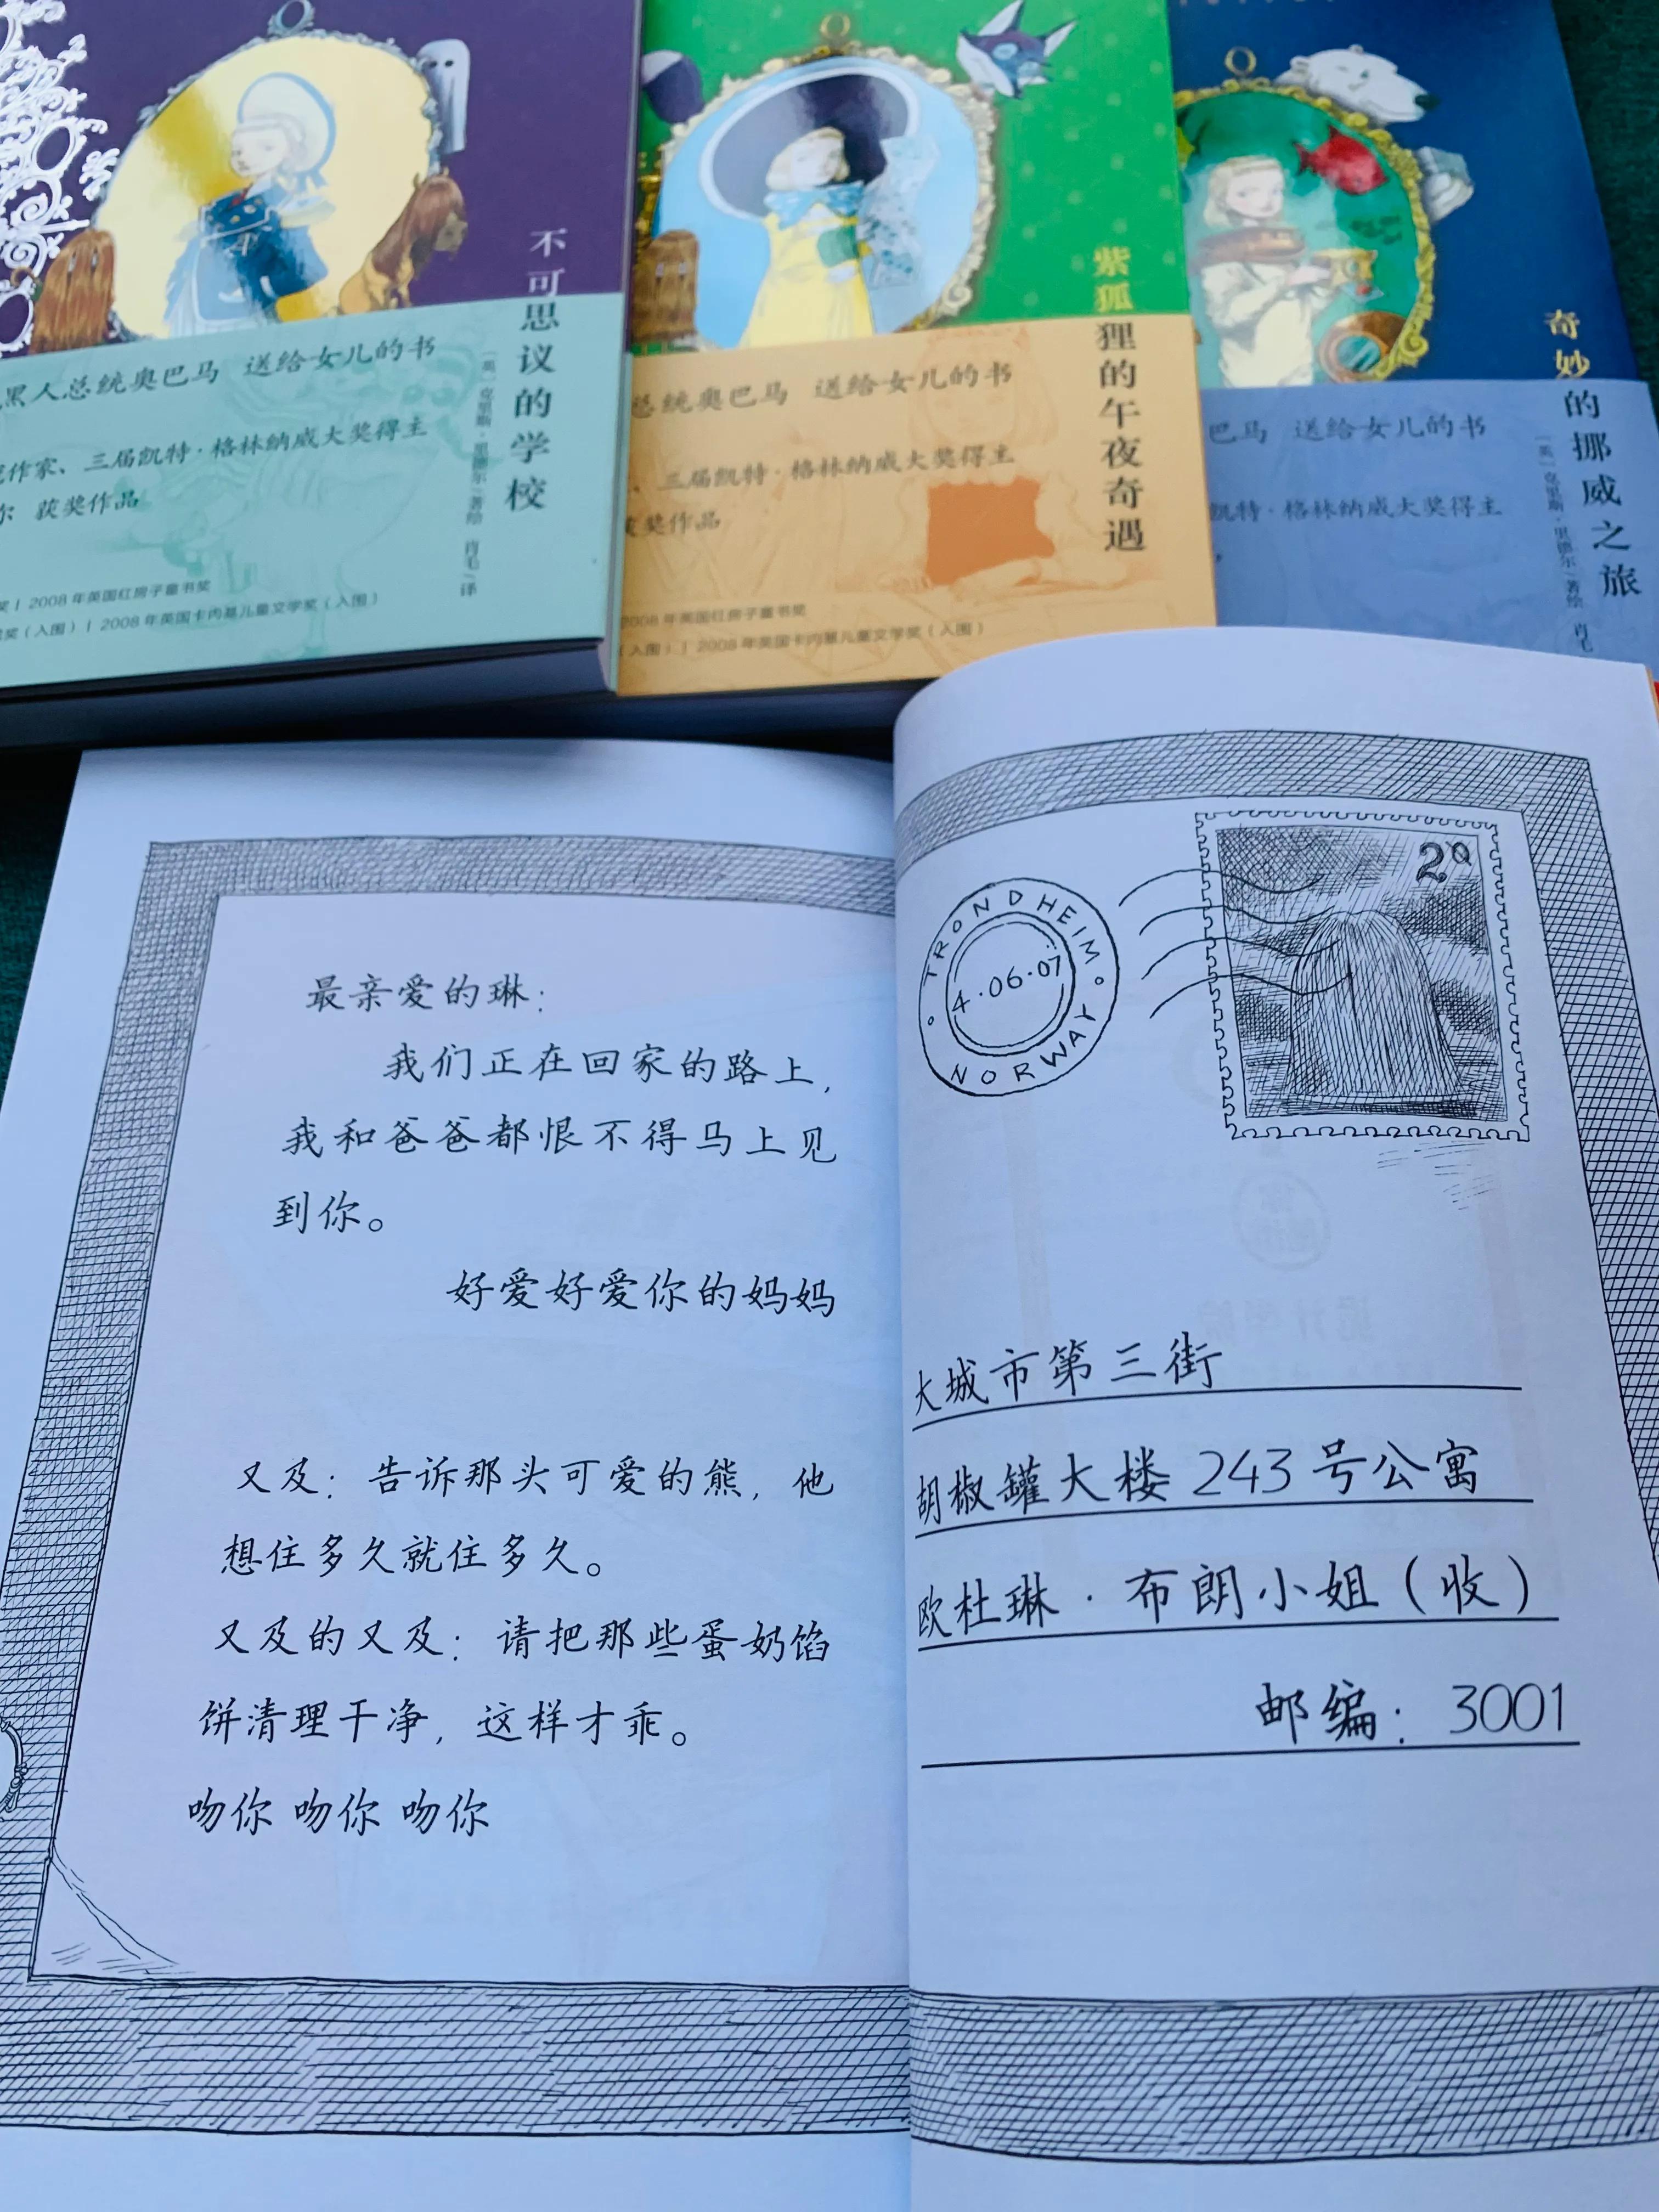 不可思议的学校
[英]克里斯·里德尔/著绘 肖毛/译
黑人总统奥巴马 送给女儿的书
作家、三届凯特·格林纳威大奖得主
尔 获奖作品
奖 | 2008年英国红房子童书奖
奖（入围）| 2008年英国卡内基儿童文学奖（入围）
紫狐狸的午夜奇遇
总统奥巴马 送给女儿的书
、三届凯特·格林纳威大奖得主
获奖作品
2008年英国红房子童书奖
（入围）| 2008年英国卡内基儿童文学奖（入围）
奇妙的挪威之旅
[英]克里斯·里德尔/著绘 肖毛
巴马 送给女儿的书
凯特·格林纳威大奖得主
最亲爱的琳：
我们正在回家的路上，
我和爸爸都恨不得马上见
到你。
好爱好爱你的妈妈
又及：告诉那头可爱的熊，他
想住多久就住多久。
又及的又及：请把那些蛋奶馅
饼清理干净，这样才乖。
吻你 吻你 吻你
TRONDHEIM
4·06·07
NORWAY
2
大城市第三街
胡椒罐大楼 243 号公寓
欧杜琳·布朗小姐（收）
邮编：3001